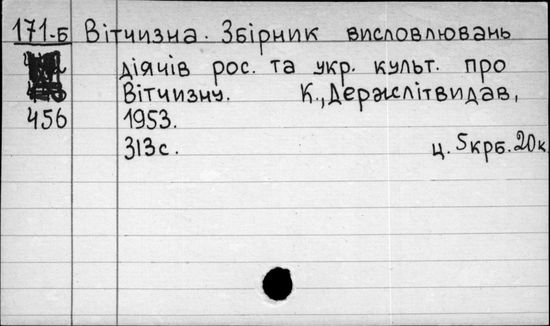 171-Б Вітчизна. Збірник висловлювань
діячів рос. та укр. культ. про
Вітчизну. К., Держлітвидав,
456 1953.
313с. ц. 5крб. 20к